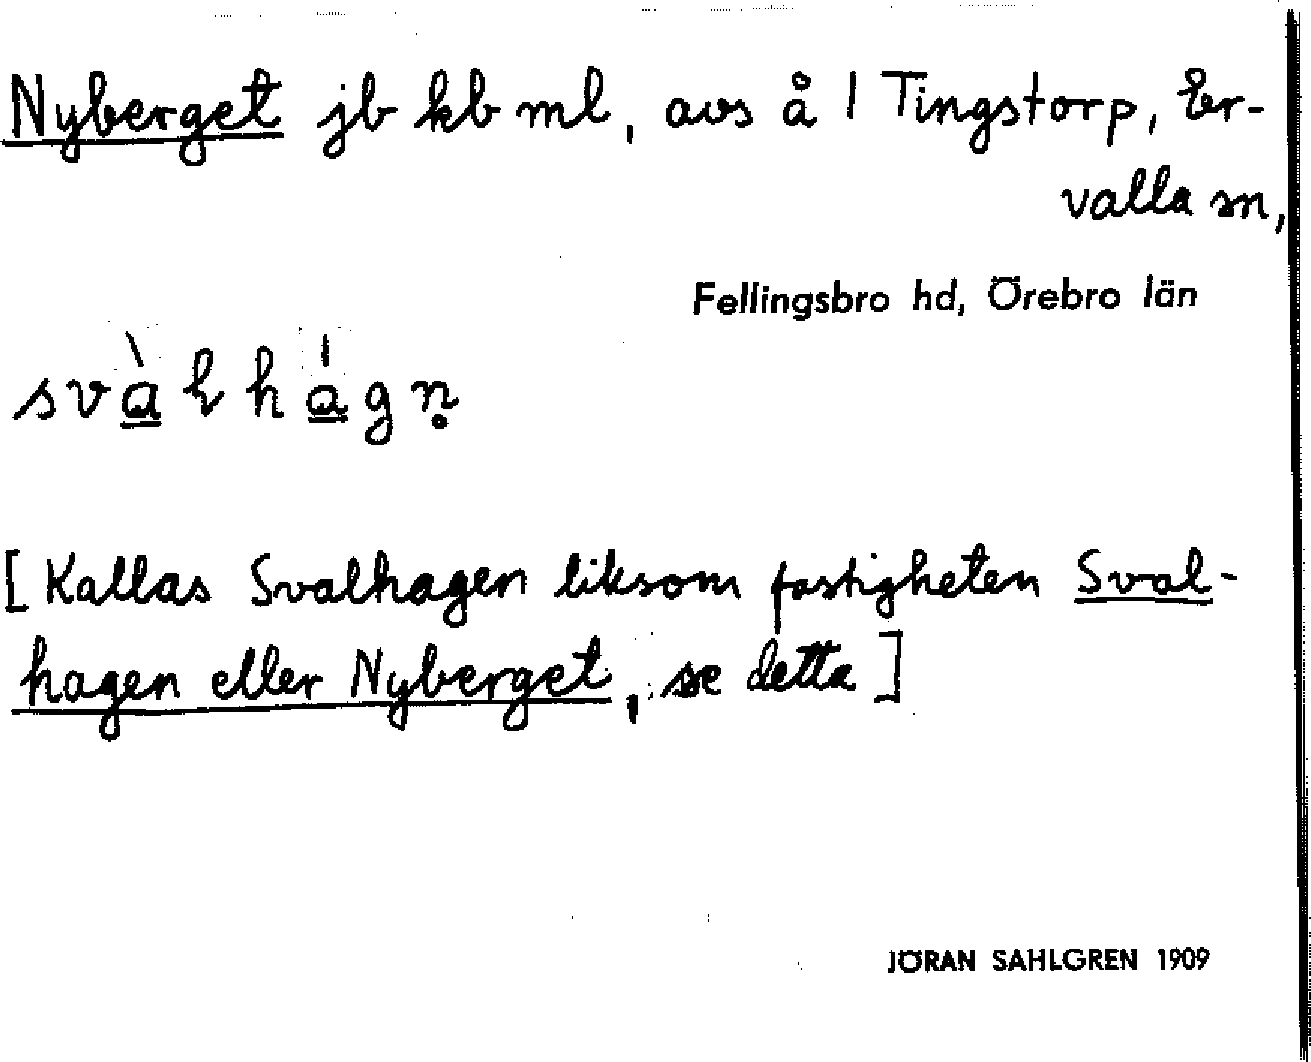 Nyberget jb kb ml, avs å 1 Tingstorp, Er-
valla sn,
Fellingsbro hd, Örebro län
svàlhágn̥
[Kallas Svalhagen liksom fastigheten Sval-
hagen eller Nyberget, se detta]
JÖRAN SAHLGREN 1909